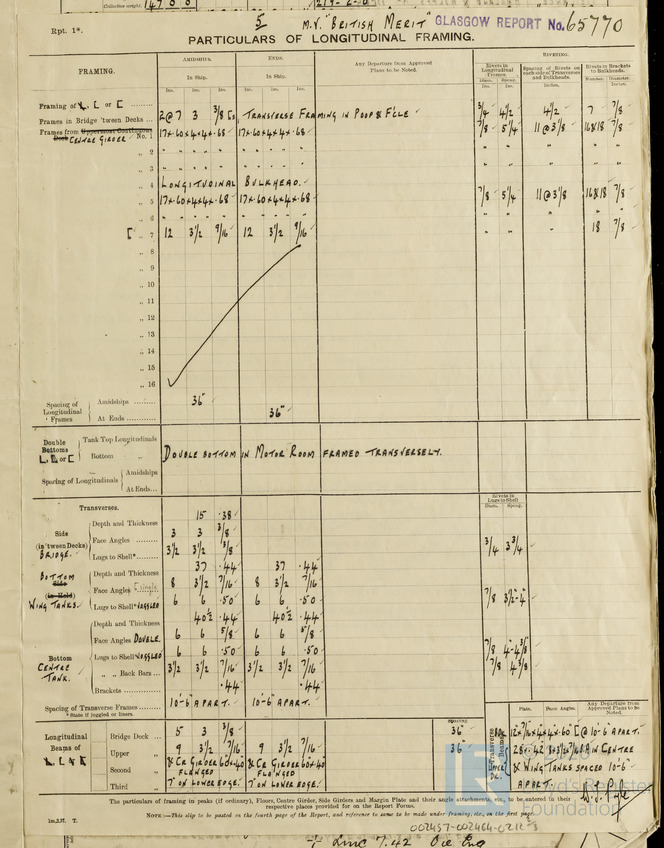 Collective weight,
Rpt. 1*.
5 M.V. "BRITISH MERIT" GLASGOW REPORT No. 65770
PARTICULARS OF LONGITUDINAL FRAMING.
FRAMING.
AMIDSHIPS. ENDS. Any Departure from Approved Plans to be Noted.
In Ship. In Ship.
Ins. Ins. Ins. Ins. Ins. Ins.
RIVETING.
Rivets in Longitudinal Frames. Spacing of Rivets on each side of Transverses and Bulkheads. Rivets in Brackets to Bulkheads.
Diam. Spacg. Inches. Number. Diameter.
Framing of L, L or [
Frames in Bridge 'tween Decks ... 2@7 3 3/8 TRANSVERSE FRAMING IN POOP & F'CLE 3/8 4 1/2 4 1/2" 7 7/8
Frames from Uppermost Continuous Deck CENTRE GIRDER No. 1 17×·60×4×4×·68 17×·60×4×4×·68 7/8 5 1/4 11@3 1/8 16&18 7/8
" 2 " " " "
" 3 " " " "
" 4 LONGITUDINAL BULKHEAD.
" 5 17×·60×4×4×·68 17×·60×4×4×·68 7/8 5 1/4 11@3 1/8 16&18 7/8
" 6 " " " "
[ " 7 12 3 1/2 9/16 12 3 1/2 9/16 " " " 18 7/8
" 8
" 9
" 10
" 11
" 12
" 13
" 14
" 15
" 16
Spacing of Longitudinal Frames
Amidships 36"
At Ends 36"
Double Bottoms L, L or [
Tank Top Longitudinals
Bottom " DOUBLE BOTTOM IN MOTOR ROOM FRAMED TRANSVERSELY.
Spacing of Longitudinals
Amidships
At Ends...
Transverses.
Rivets in Lugs to Shell
Diam. Spacg.
Side (in 'tween Decks) BRIDGE.
Depth and Thickness 15 ·38
Face Angles 3 3 3/8
Lugs to Shell* 3 1/2 3 1/2 3/8 3/4 3 3/4
BOTTOM Side (in Hold) WING TANKS.
Depth and Thickness 37 ·44 37 ·44
Face Angles 8 3 1/2 7/16 8 3 1/2 7/16
Lugs to Shell* JOGGLED 6 6 ·50 6 6 ·50 7/8 3 1/2-4
Bottom CENTRE TANK.
Depth and Thickness 40 1/2 ·44 40 1/2 ·44
Face Angles DOUBLE. 6 6 5/8 6 6 5/8
Lugs to Shell JOGGLED 6 6 ·50 6 6 ·50 7/8 4-4 3/8
" " Back Bars 3 1/2 3 1/2 7/16 3 1/2 3 1/2 7/16 7/8 4 3/8
Brackets ·44 ·44
Spacing of Transverse Frames 10'-6" APART. 10'-6" APART.
* State if joggled or liners.
Longitudinal Beams of L, L, [
SPACING
Bridge Deck ... 5 3 3/8 36"
Upper " 9 3 1/2 7/16 9 3 1/2 7/16 36"
Second " & CE GIRDER 60×40 FLANGED & CE GIRDER 60×40 FLANGED
Third " 7" ON LOWER EDGE. 7" ON LOWER EDGE.
Transverse Beams
Plate. Face Angles. Any Departure from Approved Plans to be Noted.
[@ 10'-6 APART.
IN CENTRE
& WING TANKS SPACED 10'-6"
APART.
The particulars of framing in peaks (if ordinary), Floors, Centre Girder, Side Girders and Margin Plate and their angle attachments, etc., to be entered in their respective places provided for on the Report Forms.
NOTE:—This slip to be pasted on the fourth page of the Report, and reference to same to be made under framing, etc., on the first page.
1m,2,37. T.
© 2020
Lloyd's Register
Foundation
002457-002464-0212